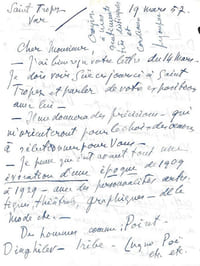 Saint Tropez 19 mars 57.
Var
Cher Monsieur,
— J'ai bien reçu votre lettre du 14 Mars.
Je dois voir, Sié en journée à Saint
Tropez et parler de votre exposition
avec lui —
Il me donnera des précisions — qui
m'orienteront pour le choix des dessins
à sélectionner pour vous —
— Je pense que c'est avant tout une
évocation d'une époque de 1909
à 1929 — avec les personnalités artis-
tiques, théâtrales, graphiques — de la
Mode etc. —
Des hommes comme: Poiret —
Diaghilew — Iribe — Lugné Poë
etc. etc.